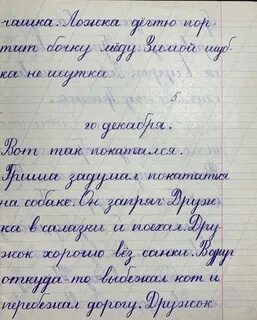 гашка. Ложка дёгтю пор-
тит бочку мёду. Зимой шуб-
ка не шутка.
5
20 декабря.
Вот так покатался.
Гриша задумал покататься
на собаке. Он запряг Друж-
ка в салазки и поехал. Дру-
жок хорошо вёз санки. Вдруг
откуда-то выбежал кот и
перебежал дорогу. Дружок